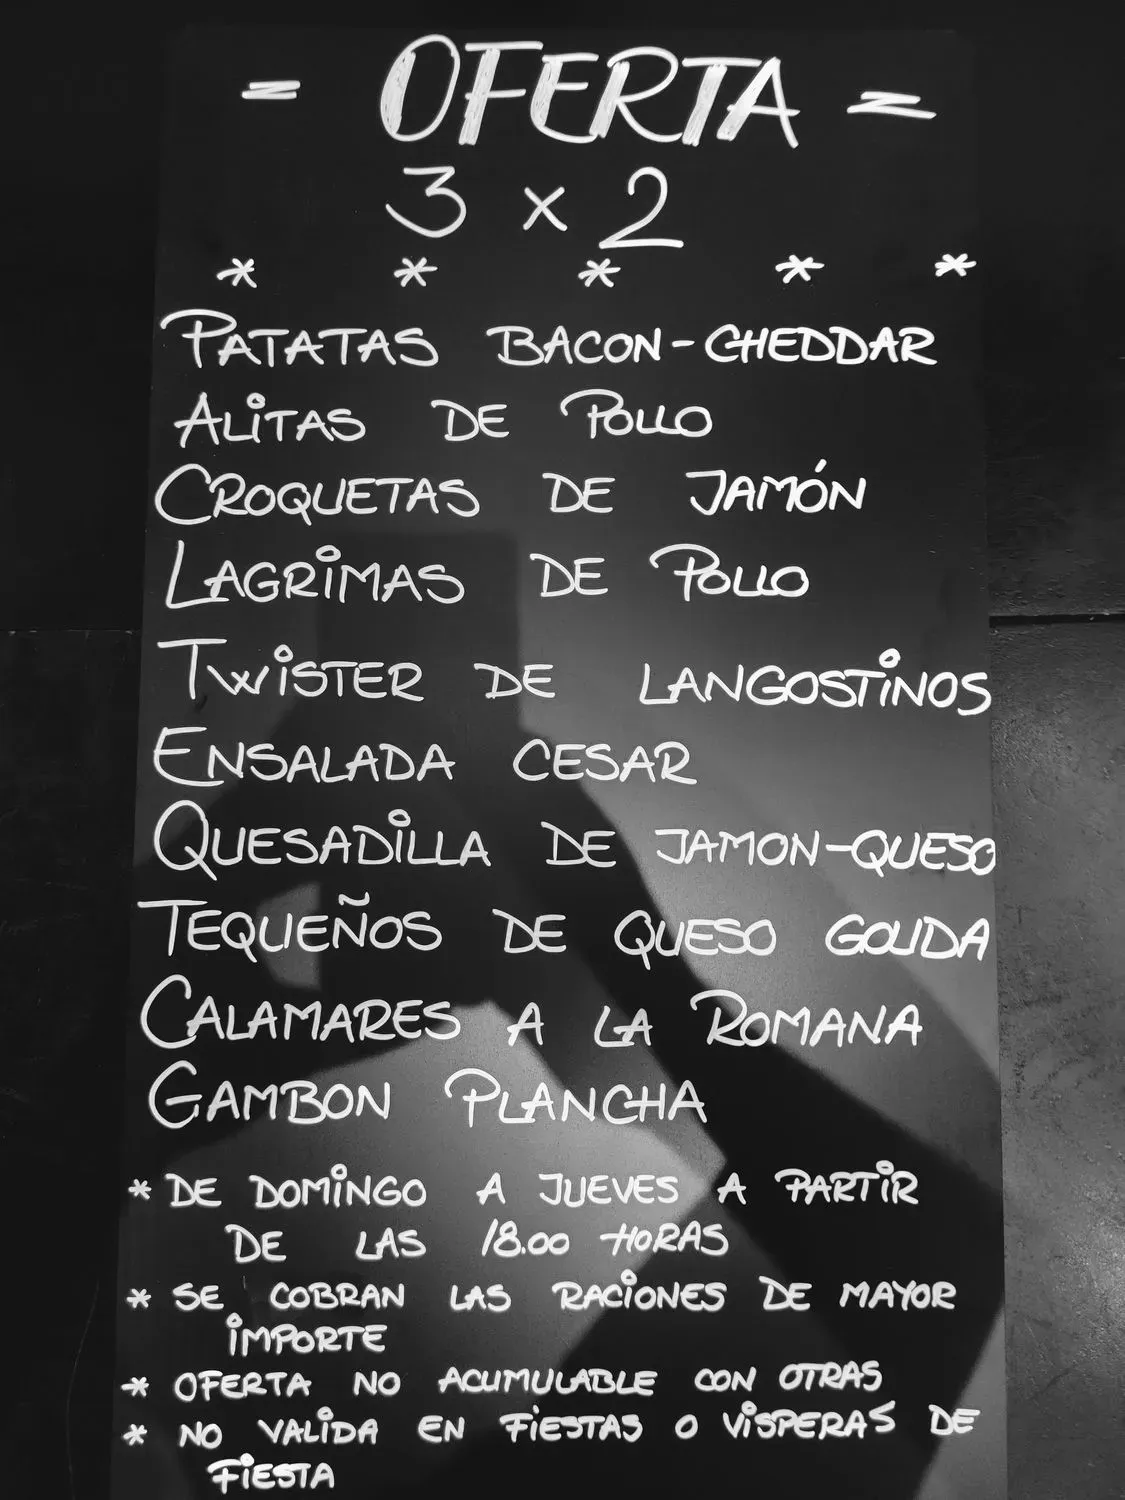 = OFERTA =
3 x 2
* * * * *
PATATAS BACON-CHEDDAR
ALITAS DE POLLO
CROQUETAS DE JAMÓN
LAGRIMAS DE POLLO
TWISTER DE LANGOSTINOS
ENSALADA CESAR
QUESADILLA DE JAMON-QUESO
TEQUEÑOS DE QUESO GOUDA
CALAMARES A LA ROMANA
GAMBON PLANCHA
* DE DOMINGO A JUEVES A PARTIR
DE LAS 18.00 HORAS
* SE COBRAN LAS RACIONES DE MAYOR
IMPORTE
* OFERTA NO ACUMULABLE CON OTRAS
* NO VALIDA EN FIESTAS O VISPERAS DE
FIESTA